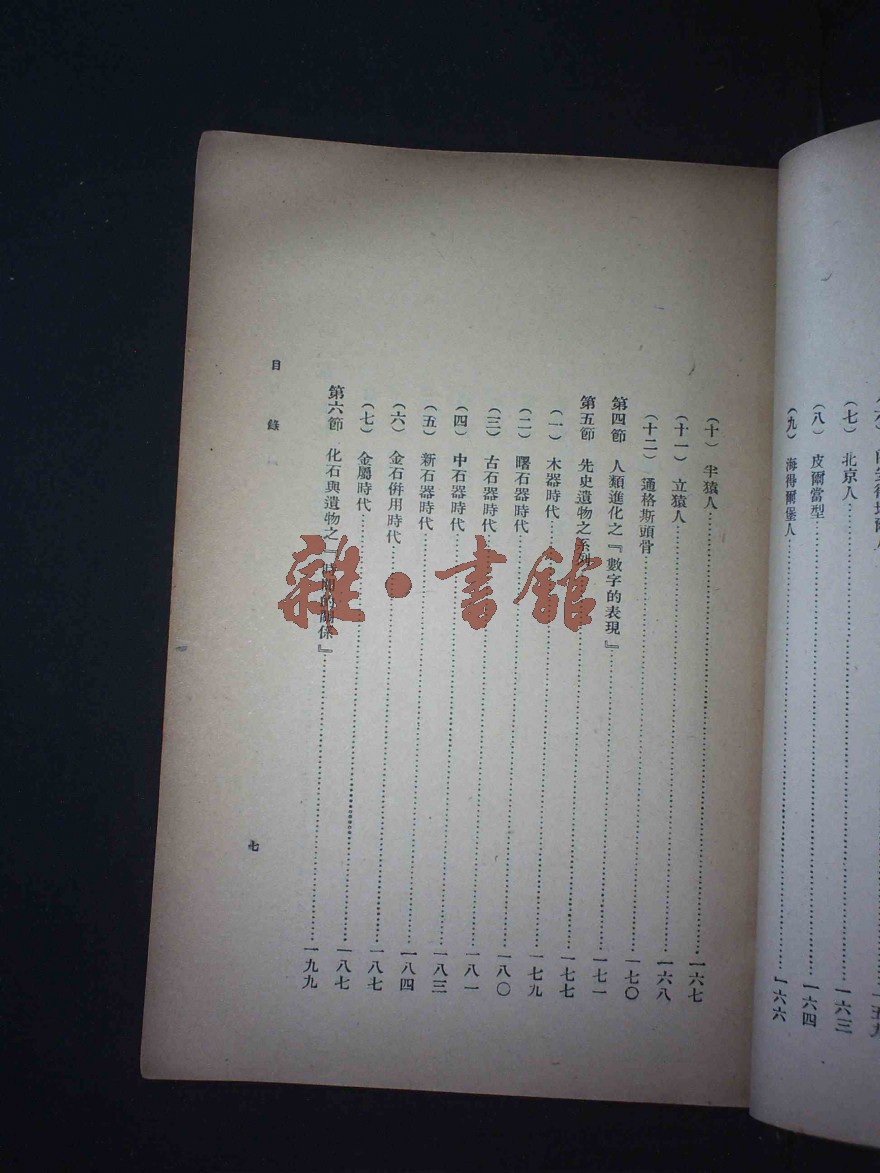 (七) 北京人……一六三
(八) 皮爾當型……一六四
(九) 海得爾堡人……一六六
(十) 半猿人……一六七
(十一) 立猿人……一六八
(十二) 通格斯頭骨……一七〇
第四節 人類進化之『數字的表現』……一七一
第五節 先史遺物之系列……一七七
(一) 木器時代……一七九
(二) 曙石器時代……一八〇
(三) 古石器時代……一八一
(四) 中石器時代……一八三
(五) 新石器時代……一八四
(六) 金石併用時代……一八七
(七) 金屬時代……一八七
第六節 化石與遺物之『時間的關係』……一九九
目錄
七
雜·書館